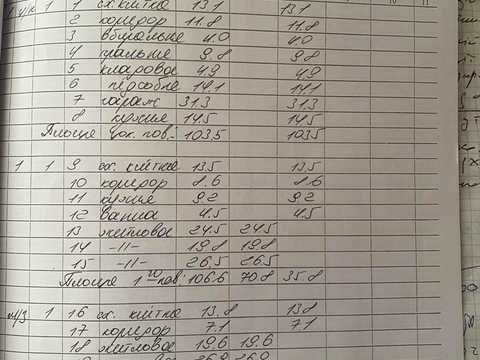 1 1 сх. клітка 13.1 13.1
2 коридор 11.8 11.8
3 вбиральня 4.0 4.0
4 пральня 9.8 9.8
5 кладова 4.9 4.9
6 підсобне 14.1 14.1
7 гараж 31.3 31.3
8 кухня 14.5 14.5
Площа цок. пов.: 103.5 103.5
1 1 9 сх. клітка 13.5 13.5
10 коридор 8.6 8.6
11 кухня 9.2 9.2
12 ванна 4.5 4.5
13 житлова 24.5 24.5
14 -||- 19.8 19.8
15 -||- 26.5 26.5
Площа 1го пов: 106.6 70.8 35.8
1 16 сх. клітка 13.8 13.8
17 коридор 7.1 7.1
18 житлова 19.6 19.6